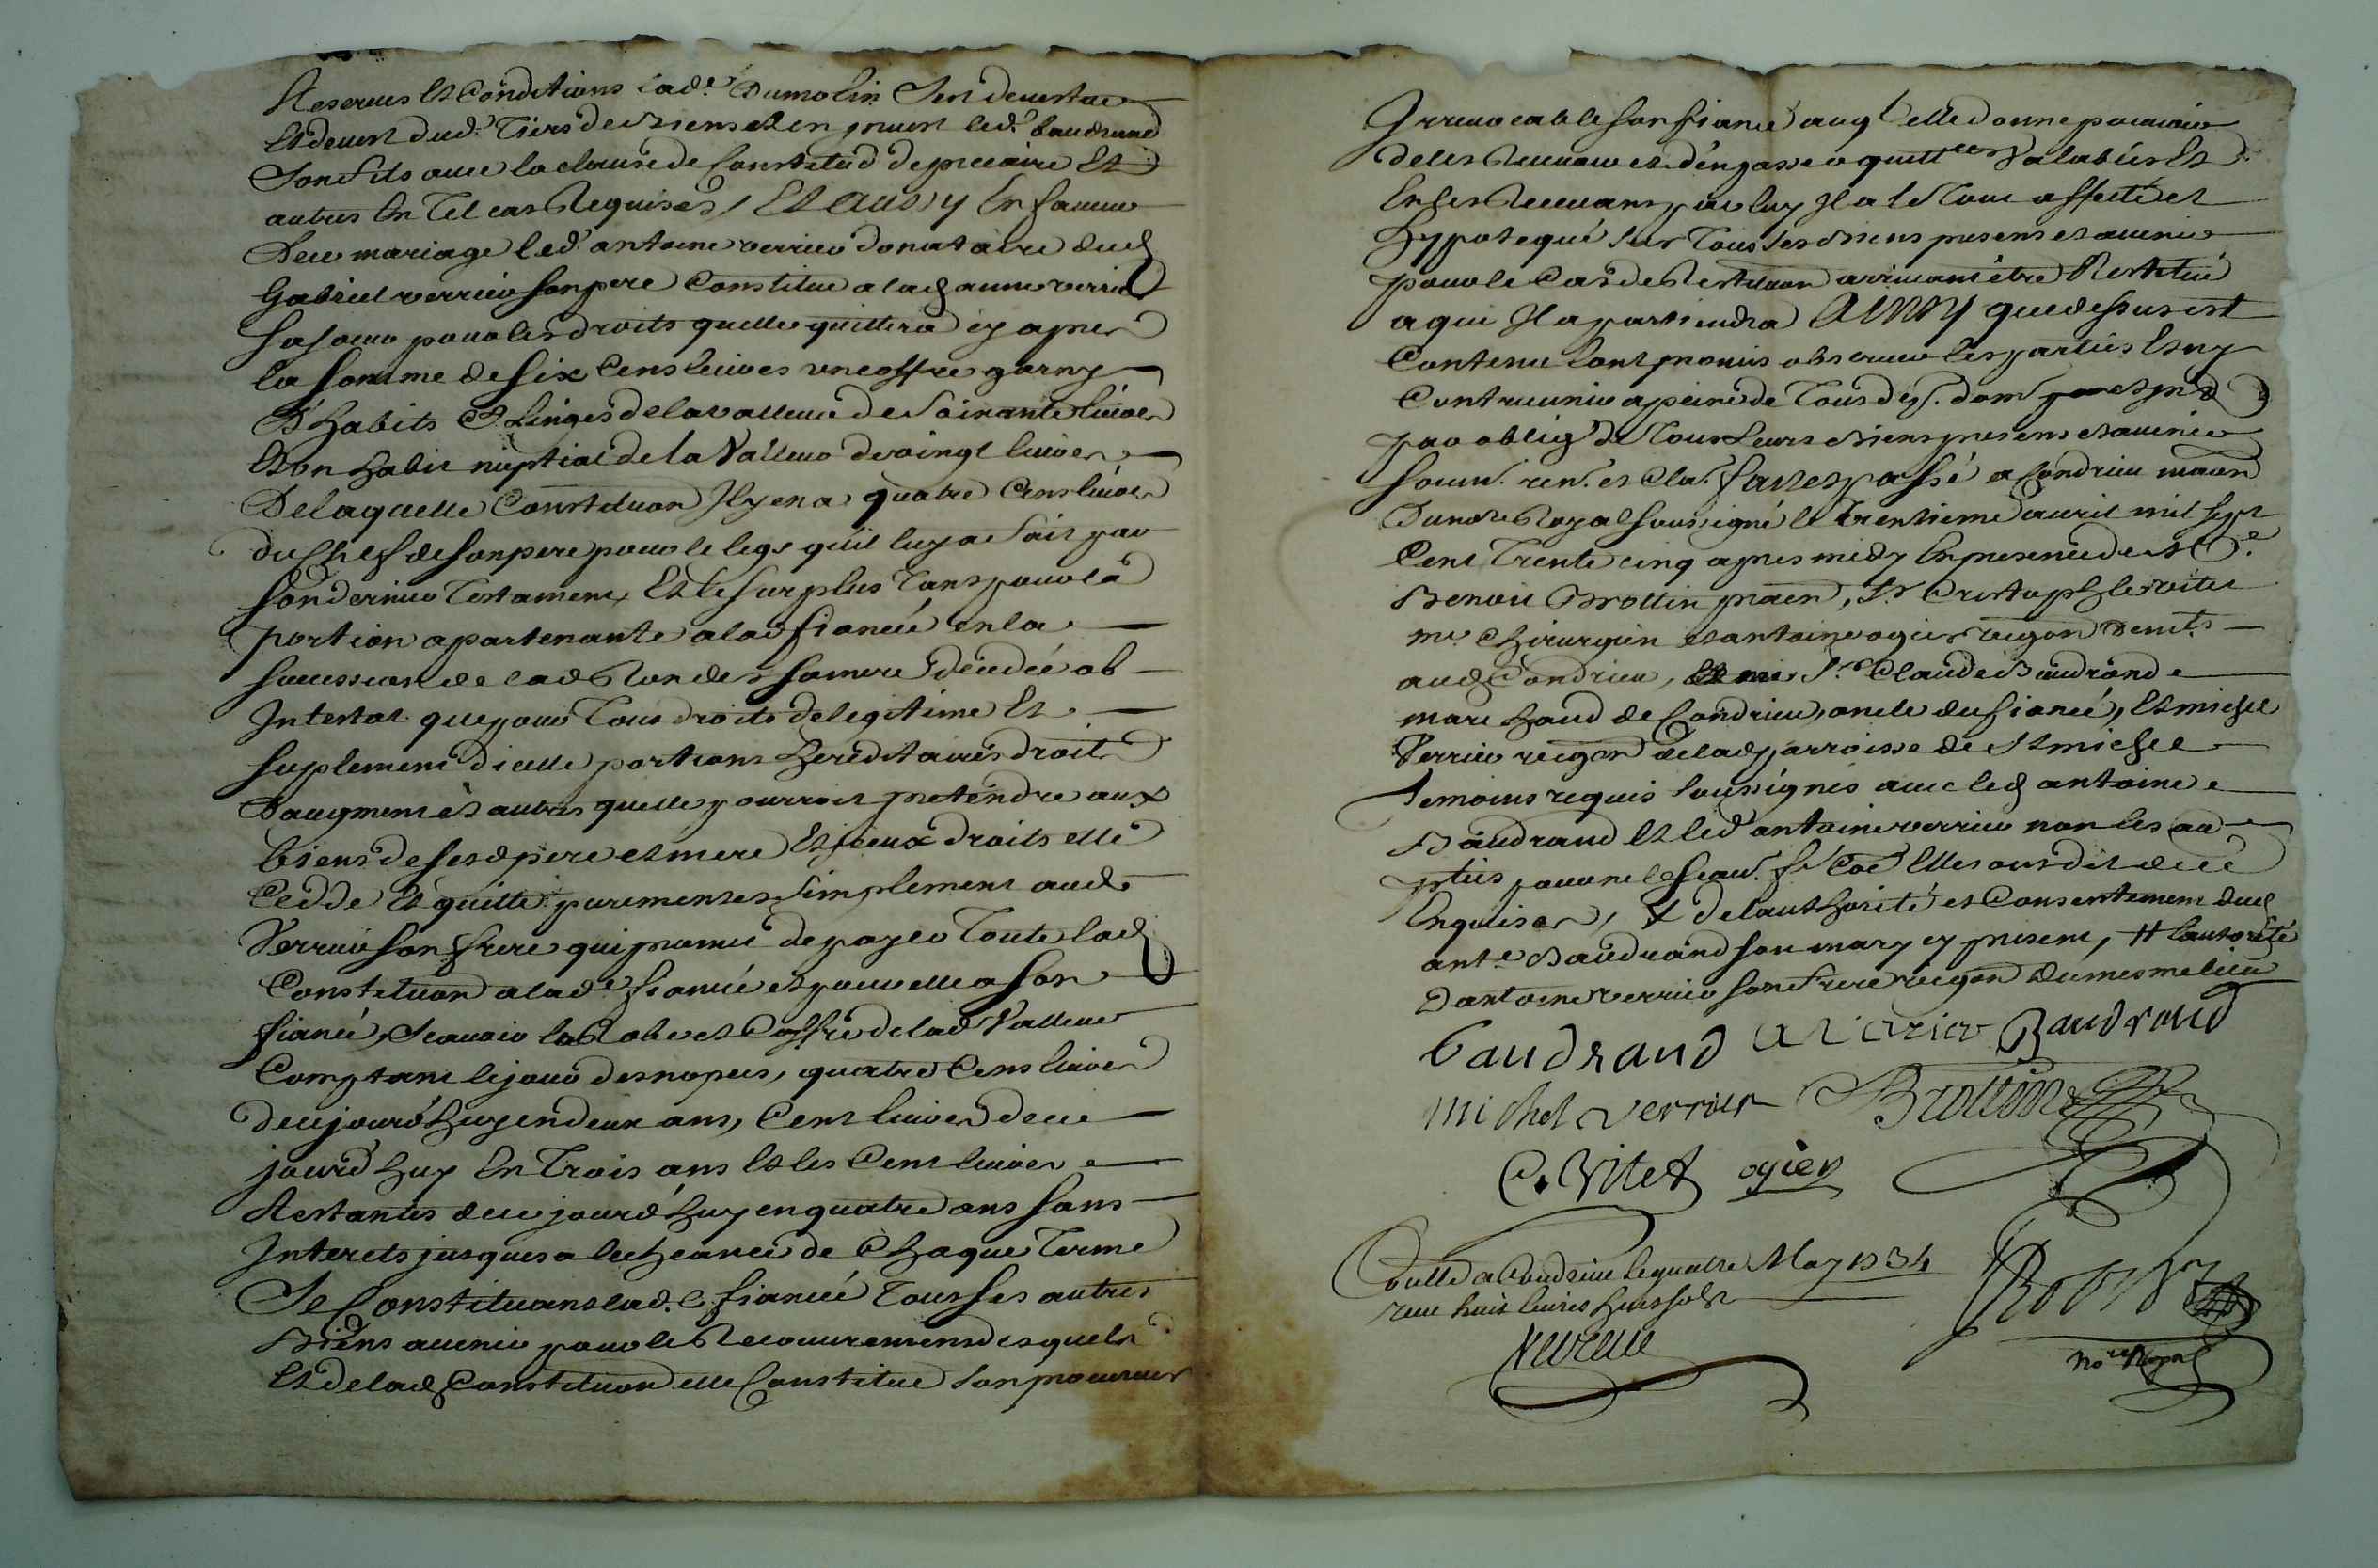 Reserves et Conditions lade. Dumolin s'est devestue
Et devest dud. Tiers de biens et en invest led. baudrand
Son fils avec la clause de Constitud de precaire Et
autres En Tel cas Requises, Et aussy En faveur
De ce mariage led. antoine verrier donataire dud
Gabriel verrier son pere Constitue a lad anne verrier
sa soeur pour les droits quelle quittera cy apres
la somme de six Cens livres un coffre garny
D'habits & Linges de la valleur de soixante livres
Et un habit nuptial de la Valleur de vingt livres
De laquelle Constitution Il y en a quatre Cens livres
du Chef de son pere pour le legs qu'il luy a fait par
son dernier Testament, Et le surplus Tant pour la
portion apartenante a lad fiancée en la
succession de lad sa mere décédée ab
Intestat que pour Tous droits de legitime Et
suplement d'icelle portions hereditaires droits
D'augment et autres quelle pourroit pretendre aux
biens de sesd pere et mere Et iceux droits elle
Cedde Et quitte purement et simplement aud.
Verrier son frere qui promet de payer Toute lad
Constitution a lade fiancée et pour elle a son
fiancé, Scavoir la Robe et Coffre de lad Valleur
Comptant le jour des nopces, quatre Cens livres
de ce jourd'huy en deux ans, Cent livres de ce
jourd'huy En Trois ans Et les Cent livres
Restantes de ce jourd'huy en quatre ans sans
Interets jusques a lecheance de Chaque Terme
Se Constituant lad. fiancée Tous ses autres
Biens avenir pour le Recouvrement desquels
Et de lad Constitution elle Constitue son procureur
Irrevocable son fiancé auql elle donne pouvoir
de les Recevoir et d'en passer quittces Valables Et
En les Recevant par luy Il a le Tout affecté et
Hypotequé sur Tous ses Biens presens et avenir
pour le Cas de Restitution arrivant être Restitué
a qui Il apartiendra Ainsy que dessus est
Contenu l'ont promis observer les parties Et ny
Contrevenir a peine de Tous dep. dom.
par oblig. de Tous Leurs Biens presens et avenir
soum. ren. et Cla. fait et passé a Condrieu maison
Du nore Royal soussigné le Trentieme avril mil sept
Cent Trente cinq apres midy En presence de
Benoit Brottin, Sr. Cristophle vitet
me. Chirurgien et antoine ogier vigon demts.
aud Condrieu, Sr. Claude Baudrand
marchand de Condrieu, oncle du fiancé, Et michel
Verrier vigon de lad parroisse de St michel
Temoins requis soussignés avec led antoine
Baudrand Et led antoine verrier non les au
pties pour ne le scav. Elles ont dit de ce
Enquises, X de l'authorité et Consentement dud
ante. Baudrand son mary cy present, # lautorité
D'antoine verrier son frere vigon du mesme lieu
baudrand A Verier Baudrand
michel verrier Brottin
C. Vitet ogier
Conllé a Condrieu le quatre May
receu huit livres huit sols
Nore Royal